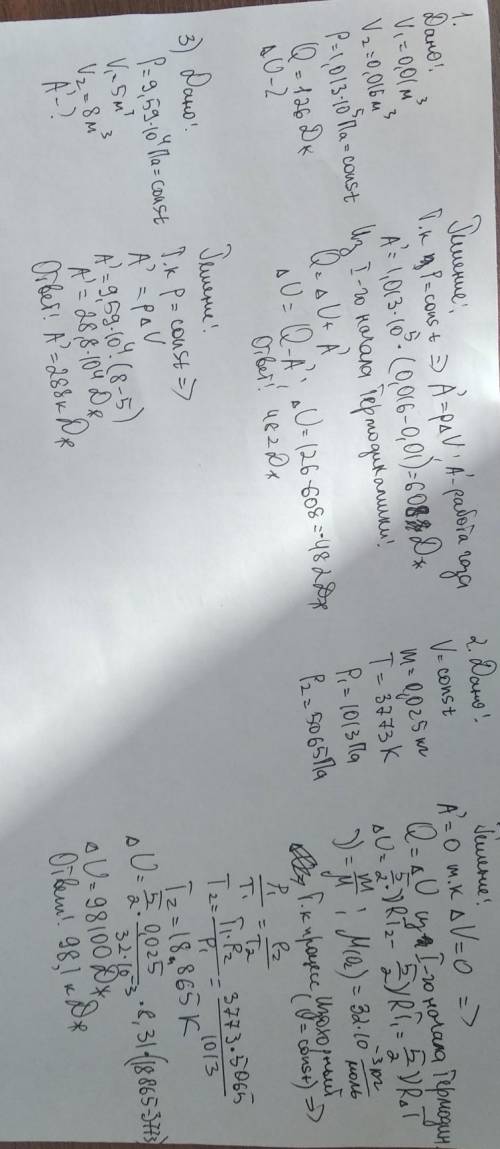 1.
Дано!
V₁=0,01м³
V₂=0,016м³
P=1,013·10⁵Па=const
Q=126Дж
ΔU-?
Решение!
Т.к P=const => A'=pΔV; A'-работа газа
A'=1,013·10⁵·(0,016-0,01)=608Дж
Из I-го начала
Q=ΔU+A'
ΔU=Q-A'; ΔU=126-608=-482Дж
Ответ! 482Дж
3) Дано!
P=9,59·10⁴Па=const
V₁=5м³
V₂=8м³
A'-?
Решение!
Т.к p=const =>
A'=pΔV
A'=9,59·10⁴·(8-5)
A'=28,8·10⁴Дж
Ответ! A'=288кДж
2. Дано!
V=const
m=0,025кг
T=3773K
P₁=1013Па
P₂=5065Па
Решение!
A'=0 т.к ΔV=0 =>
Q=ΔU из I-го начала термодин.
ΔU=5/2·νRT₂-5/2νRT₁=5/2νRΔT
ν=m/M; M(O₂)=32·10⁻³кг/моль
Т.к процесс изохорный
(V=const) =>
P₁/T₁=P₂/T₂
T₂=T₁·P₂/P₁=3773·5065/1013
T₂=18,865K
ΔU=5/2·0,025/32·10⁻³·8,31·(18865-3773)
ΔU=98100Дж
Ответ! 98,1кДж